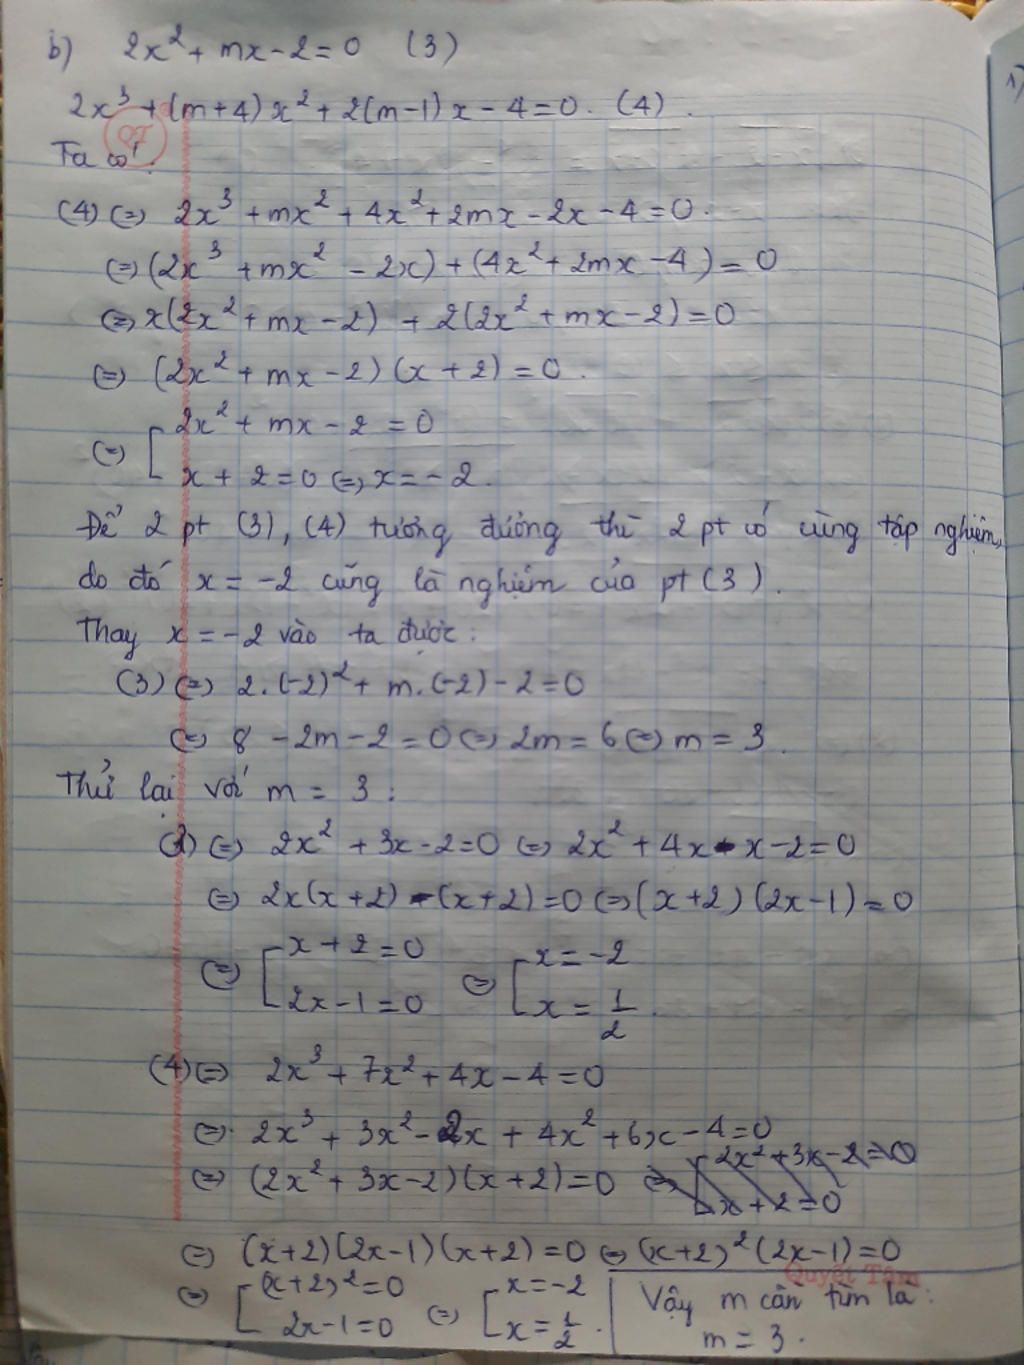 b) 2x² + mx - 2 = 0 (3)
2x³ + (m+4)x² + 2(m-1)x - 4 = 0. (4).
QT
Ta có:
(4) (=) 2x³ + mx² + 4x² + 2mx - 2x - 4 = 0.
(=) (2x³ + mx² - 2x) + (4x² + 2mx - 4) = 0
(=) x(2x² + mx - 2) + 2(2x² + mx - 2) = 0
(=) (2x² + mx - 2) (x + 2) = 0.
(=) [ 2x² + mx - 2 = 0
x + 2 = 0 (=) x = -2.
Để 2 pt (3), (4) tương đương thì 2 pt có cùng tập nghiệm,
do đó x = -2 cũng là nghiệm của pt (3).
Thay x = -2 vào ta được:
(3) (=) 2.(-2)² + m.(-2) - 2 = 0
(=) 8 - 2m - 2 = 0 (=) 2m = 6 (=) m = 3.
Thử lại với m = 3:
(3) (=) 2x² + 3x - 2 = 0 (=) 2x² + 4x - x - 2 = 0
(=) 2x(x + 2) - (x + 2) = 0 (=) (x + 2) (2x - 1) = 0
(=) [ x + 2 = 0 (=) [ x = -2
2x - 1 = 0 x = 1/2.
(4) (=) 2x³ + 7x² + 4x - 4 = 0
(=) 2x³ + 3x² - 2x + 4x² + 6x - 4 = 0
(=) (2x² + 3x - 2)(x + 2) = 0 (=) [ 2x² + 3x - 2 = 0
x + 2 = 0
(=) (x + 2)(2x - 1)(x + 2) = 0 (=) (x + 2)² (2x - 1) = 0
Quyết Tâm
(=) [ (x + 2)² = 0 (=) [ x = -2
2x - 1 = 0 x = 1/2.
Vậy m cần tìm là:
m = 3.